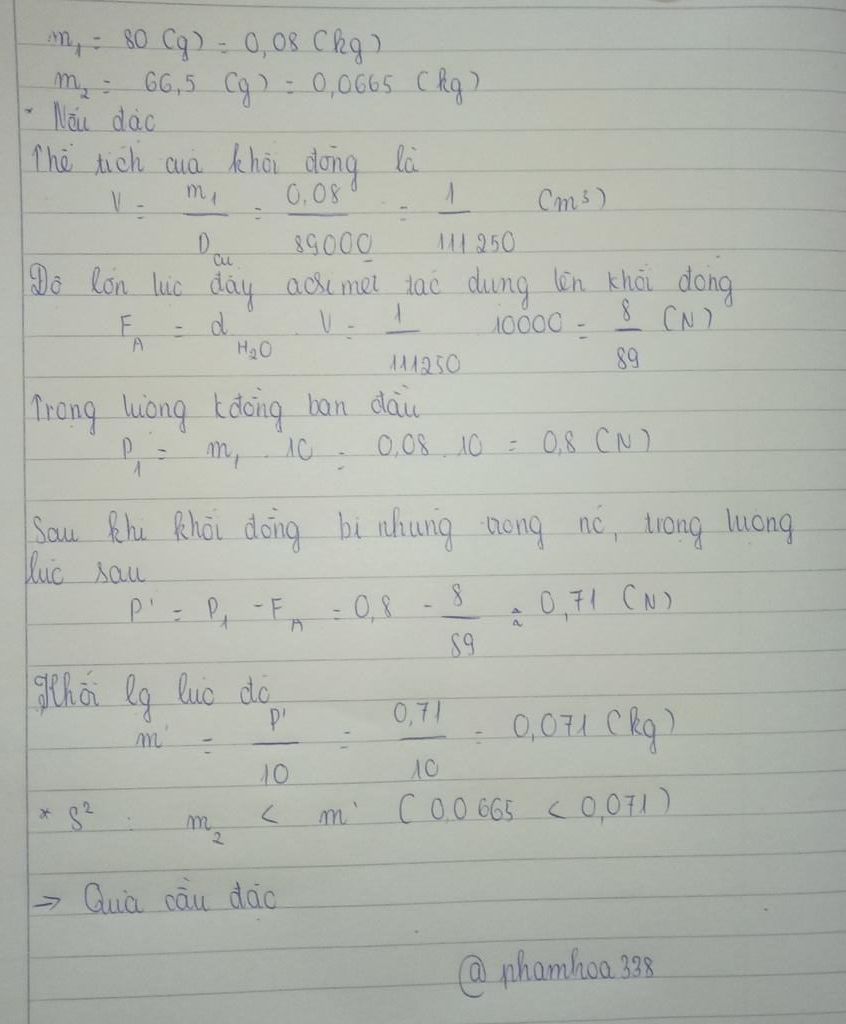 m₁ = 80 (g) = 0,08 (kg)
m₂ = 66,5 (g) = 0,0665 (kg)
* Nếu đác
Thể tích cuả khôí đồng là
V = m₁/D_cu = 0,08/89000 = 1/111250 (m³)
Độ lớn lực đâỷ acsimet tać dụng lên khôí đồng
F_A = d_H₂O . V = 1/111250 10000 = 8/89 (N)
Trọng lượng kđồng ban đâù
P₁ = m₁ . 10 = 0,08 . 10 = 0,8 (N)
Sau khi khôí đồng bị nhúng trong nć, trọng lượng
lúc sau
P' = P₁ - F_A = 0,8 - 8/89 ≈ 0,71 (N)
Khối lg lúc đó
m' = P'/10 = 0,71/10 = 0,071 (kg)
* S² : m₂ < m' (0,0665 < 0,071)
→ Quả cầu đác
@phamhoa338